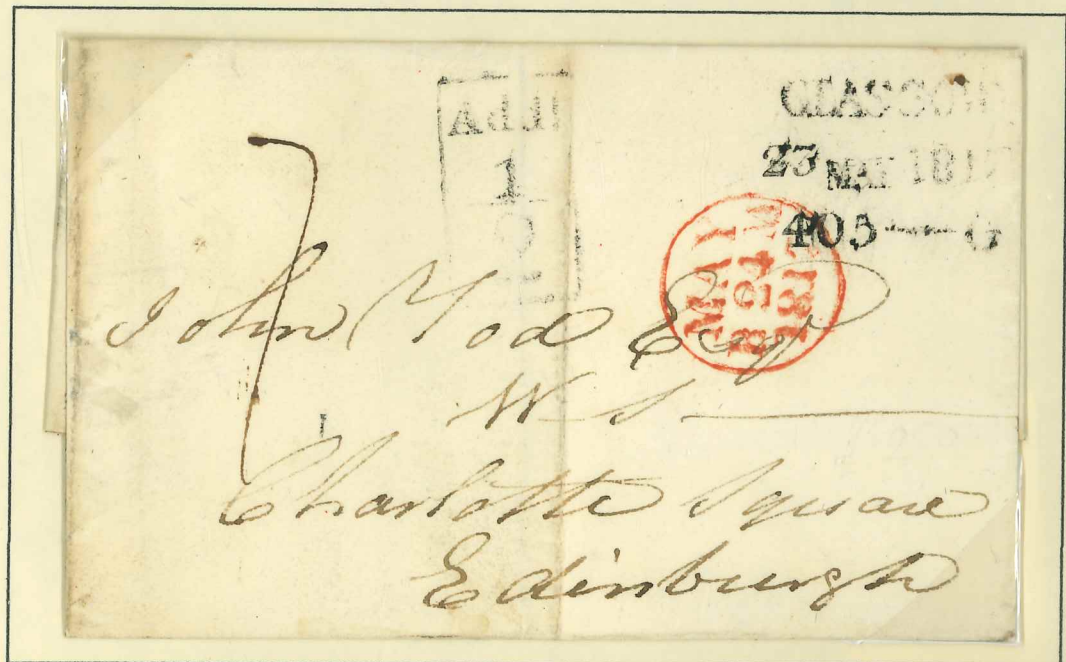 Addl
1
2
GLASGOW
23 MAY 181
405 G
MAY
B 24 M
181
7
John Tod Esqr
W S
Charlotte Square
Edinburgh